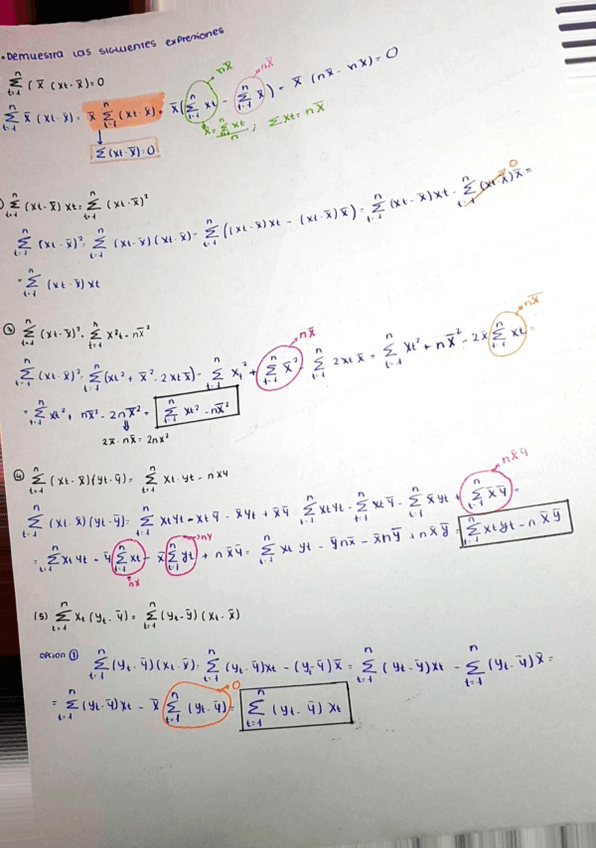 • Demuestra las siguientes expresiones
Σ_{t=1}^{n} (x̄ (xt - x̄) = 0
nx̄ nx̄
Σ_{t=1}^{n} x̄ (xt - x̄) = x̄ Σ_{t=1}^{n} (xt - x̄) = x̄ (Σ_{t=1}^{n} xt - Σ_{t=1}^{n} x̄) = x̄ (nx̄ - nx̄) = 0
x̄ = Σ_{t=1}^{n} xt / n ; Σ xt = nx̄
Σ (xt - x̄) = 0
) Σ_{t=1}^{n} (xt - x̄) xt = Σ_{t=1}^{n} (xt - x̄)²
0
Σ_{t=1}^{n} (xt - x̄)² = Σ_{t=1}^{n} (xt - x̄)(xt - x̄) = Σ_{t=1}^{n} ((xt - x̄) xt - (xt - x̄) x̄) = Σ_{t=1}^{n} (xt - x̄) xt - Σ_{t=1}^{n} (xt - x̄) x̄ =
= Σ_{t=1}^{n} (xt - x̄) xt
③ Σ_{t=1}^{n} (xt - x̄)² = Σ_{t=1}^{n} x²t - nx̄²
nx̄ nx̄
Σ_{t=1}^{n} (xt - x̄)² = Σ_{t=1}^{n} (xt² + x̄² - 2xt x̄) = Σ_{t=1}^{n} xt² + Σ_{t=1}^{n} x̄² - Σ_{t=1}^{n} 2xt x̄ = Σ_{t=1}^{n} xt² + nx̄² - 2x̄ Σ_{t=1}^{n} xt =
= Σ_{t=1}^{n} xt² + nx̄² - 2nx̄² = Σ_{t=1}^{n} xt² - nx̄²
2x̄ · nx̄ = 2nx²
④ Σ_{t=1}^{n} (xt - x̄)(yt - ȳ) = Σ_{t=1}^{n} xt · yt - nxy
nx̄ȳ
Σ_{t=1}^{n} (xt - x̄)(yt - ȳ) = Σ_{t=1}^{n} xtyt - xtȳ - x̄yt + x̄ȳ Σ_{t=1}^{n} xtyt - Σ_{t=1}^{n} xt ȳ - Σ_{t=1}^{n} x̄yt + Σ_{t=1}^{n} x̄ȳ =
ny
= Σ_{t=1}^{n} xt yt - ȳ Σ_{t=1}^{n} xt - x̄ Σ_{t=1}^{n} yt + n x̄ȳ = Σ_{t=1}^{n} xt yt - ȳnx̄ - x̄nȳ + nx̄ȳ = Σ_{t=1}^{n} xt yt - n x̄ ȳ
nx
(5) Σ_{t=1}^{n} xt (yt - ȳ) = Σ_{t=1}^{n} (yt - ȳ)(xt - x̄)
opción ① Σ_{t=1}^{n} (yt - ȳ)(xt - x̄) = Σ_{t=1}^{n} (yt - ȳ)xt - (yt - ȳ)x̄ = Σ_{t=1}^{n} (yt - ȳ)xt - Σ_{t=1}^{n} (yt - ȳ)x̄ =
0
= Σ_{t=1}^{n} (yt - ȳ)xt - x̄ Σ_{t=1}^{n} (yt - ȳ) = Σ_{t=1}^{n} (yt - ȳ) xt